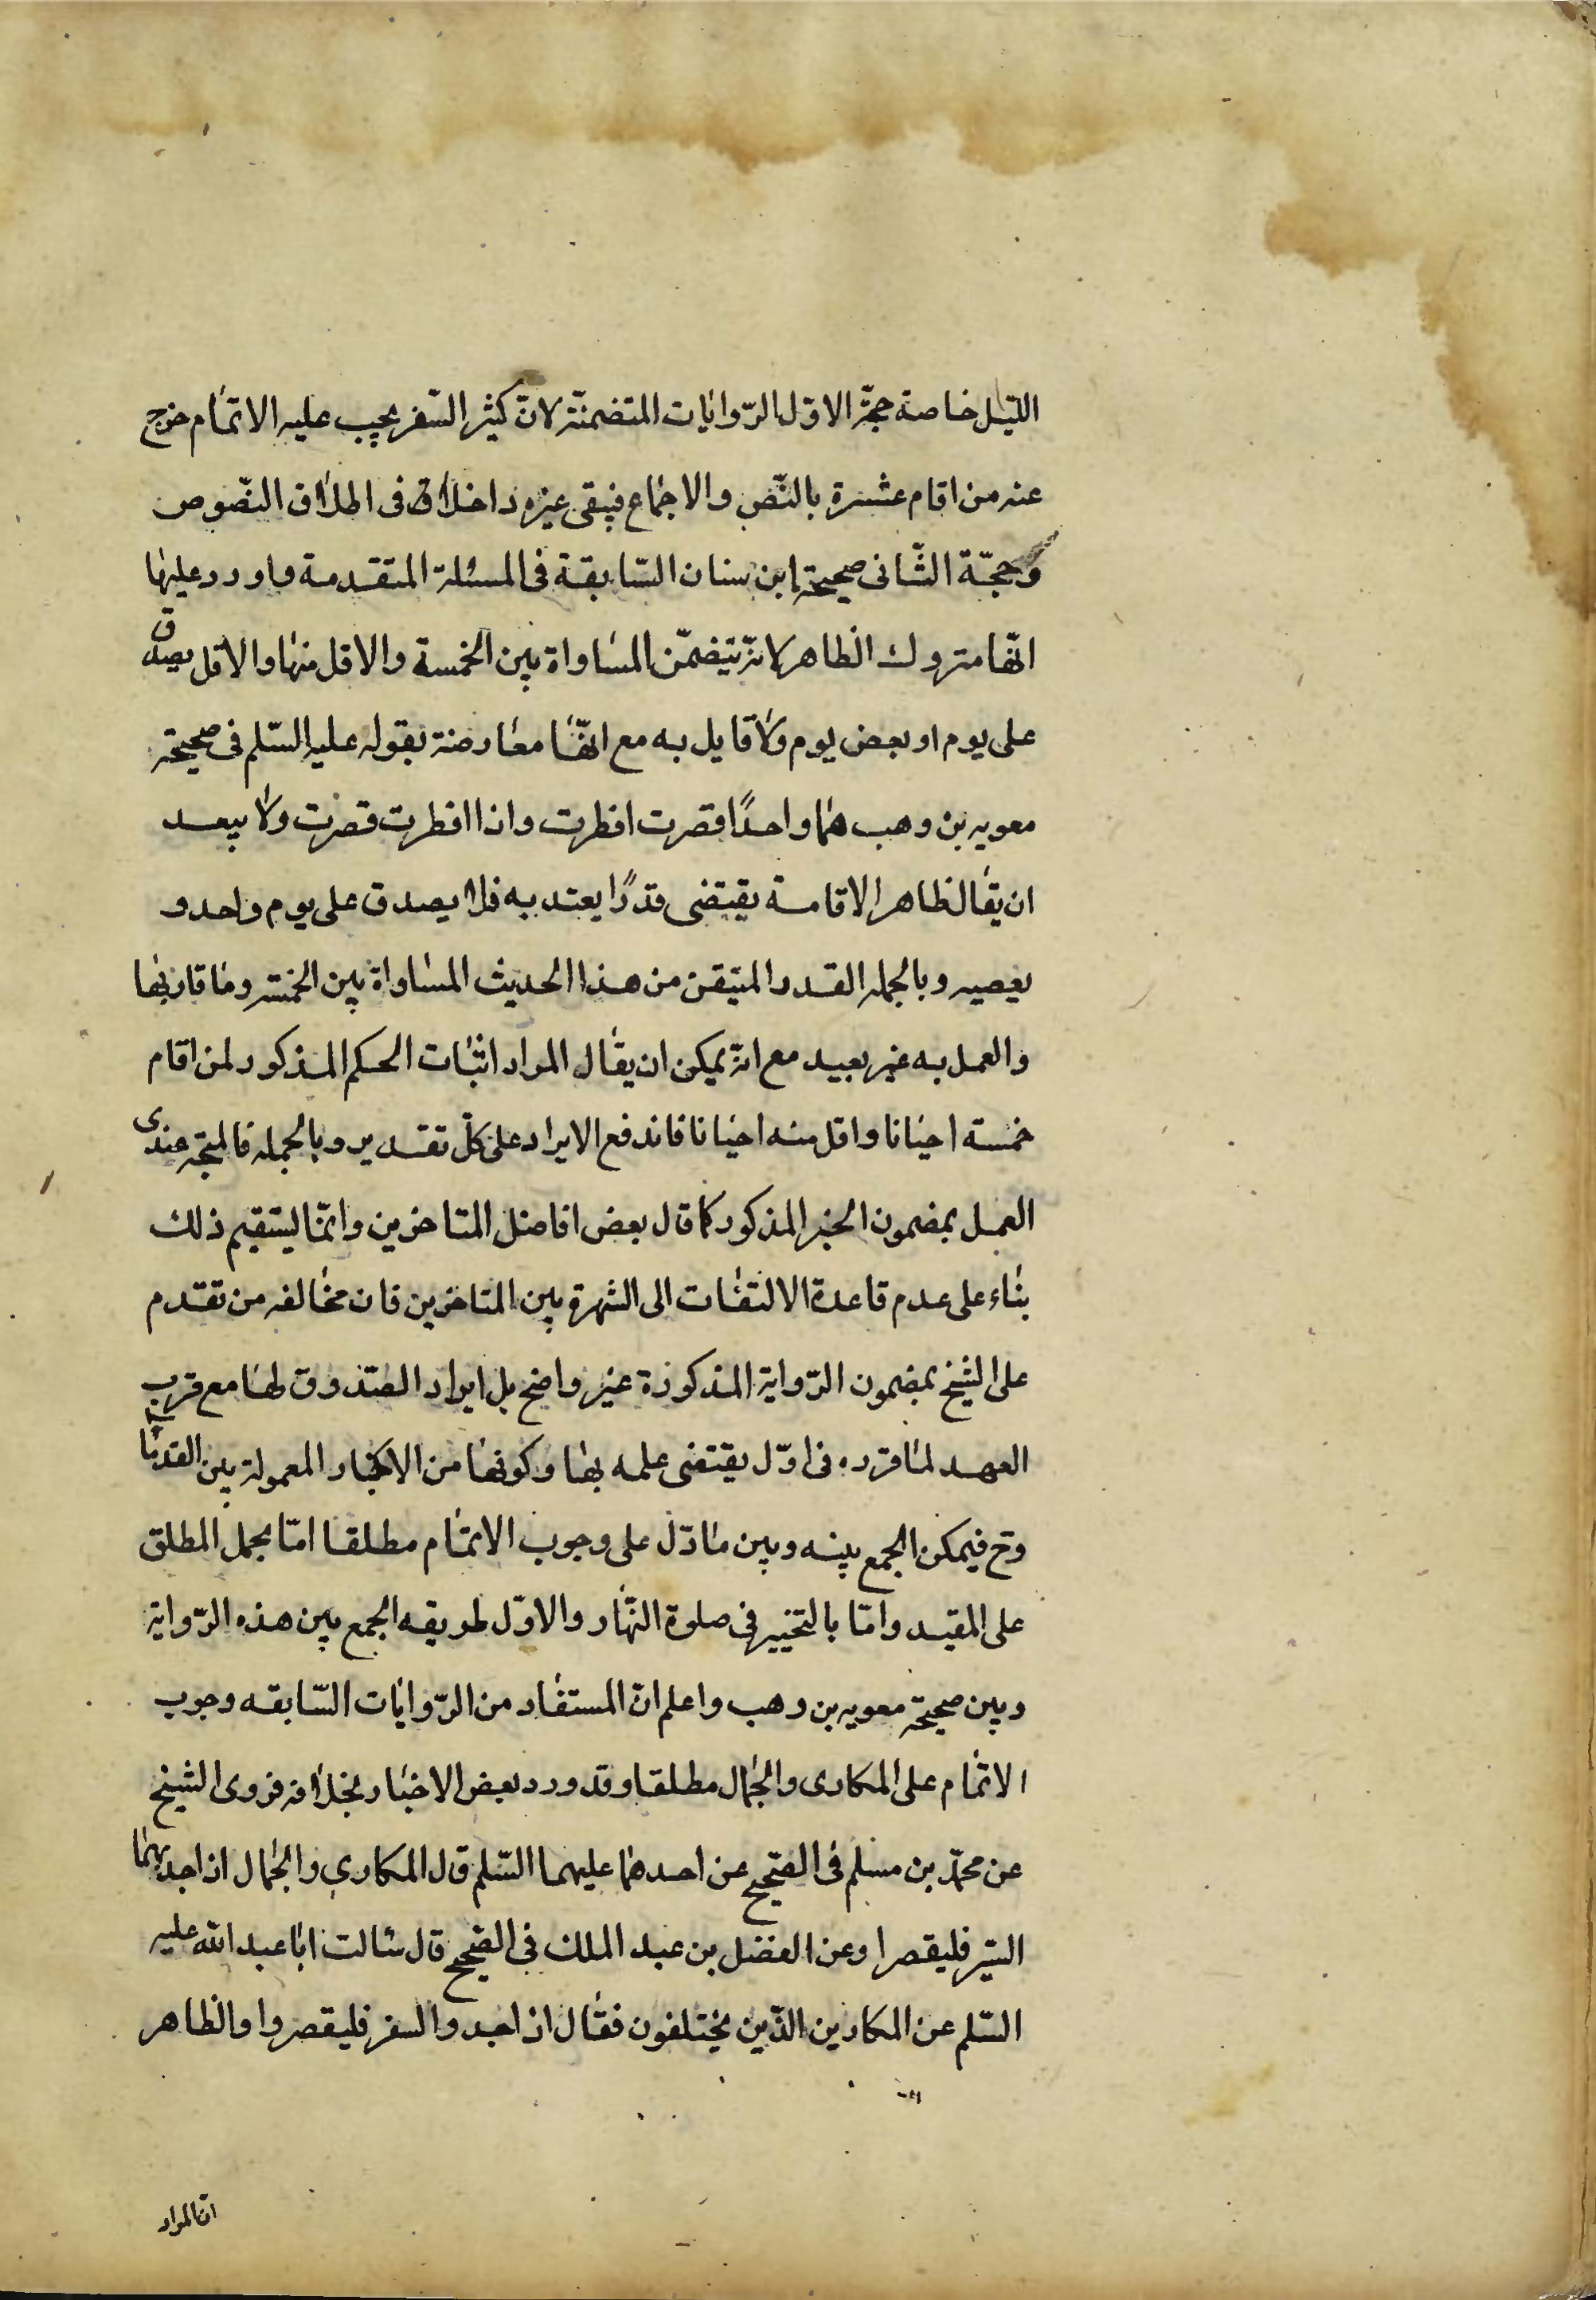 الليل خاصة حجة الاوّل الرّوايات المتضمنّة لانّ كثير السّفر يجب عليه الاتمام خرج
عنه من اقام عشرة بالنّص والاجماع فيبقى غيره داخلا فى اطلاق النّصوص
وحجّة الثّانى صحيحة ابن سنان السّابقة فى المسئلة المتقدمة واورد عليها
انّها متروك الظاهر لانّه يتضمّن المساواة بين الخمسة والاقل منها والاقل يصدق
على يوم او بعض يوم ولا قايل به مع انّها معارضة بقوله عليه السّلم فى صحيحة
معويه بن وهب هما واحدًا قصرت افطرت واذا افطرت قصرت ولا يبعد
ان يقال ظاهر الاقامة يقتضى قدرًا يعتد به فلا يصدق على يوم واحد و
بعضه وبالجمله القدر المتيقن من هذا الحديث المساواة بين الخمسة وما قاربها
والعمل به غير بعيد مع انّه يمكن ان يقال المراد اثبات الحكم المذكور لمن اقام
خمسته احيانا واقل منه احيانا فاندفع الايراد على كلّ تقدير وبالجمله فالمتجه عندى
العمل بمضمون الخبر المذكور كما قال بعض افاضل المتاخرين وانّما يستقيم ذلك
بناء على عدم قاعدة الالتفات الى الشهرة بين المتاخرين فان مخالفه من تقدم
على الشيخ بمضمون الرّواية المذكورة غير واضح بل ايراد الصّدوق لها مع قرب
العهد لما قرره فى اوّل يقتضى علمه بها وكونها من الاخبار المعمولة بين القدمآ
وح فيمكن الجمع بينه وبين ما دّل على وجوب الاتمام مطلقا امّا بحمل المطلق
على المقيد وامّا بالتخيير فى صلوة النّهار والاوّل طريقه الجمع بين هذه الرّواية
وبين صحيحة معويه بن وهب واعلم انّ المستفاد من الرّوايات السّابقه وجوب
الاتمام على المكارى والجمال مطلقا وقد ورد بعض الاخبار بخلافه فروى الشيخ
عن محمّد بن مسلم فى الصّحيح عن احدهما عليهما السّلم قال المكارى والجمال اذا جدّ بهما
السّير فليقصرا وعن الفضل بن عبد الملك فى الصّحيح قال سالت ابا عبد الله عليه
السّلم عن المكارين الذّين يختلفون فقال اذا جدو السفر فليقصروا والظاهر
انّ المراد